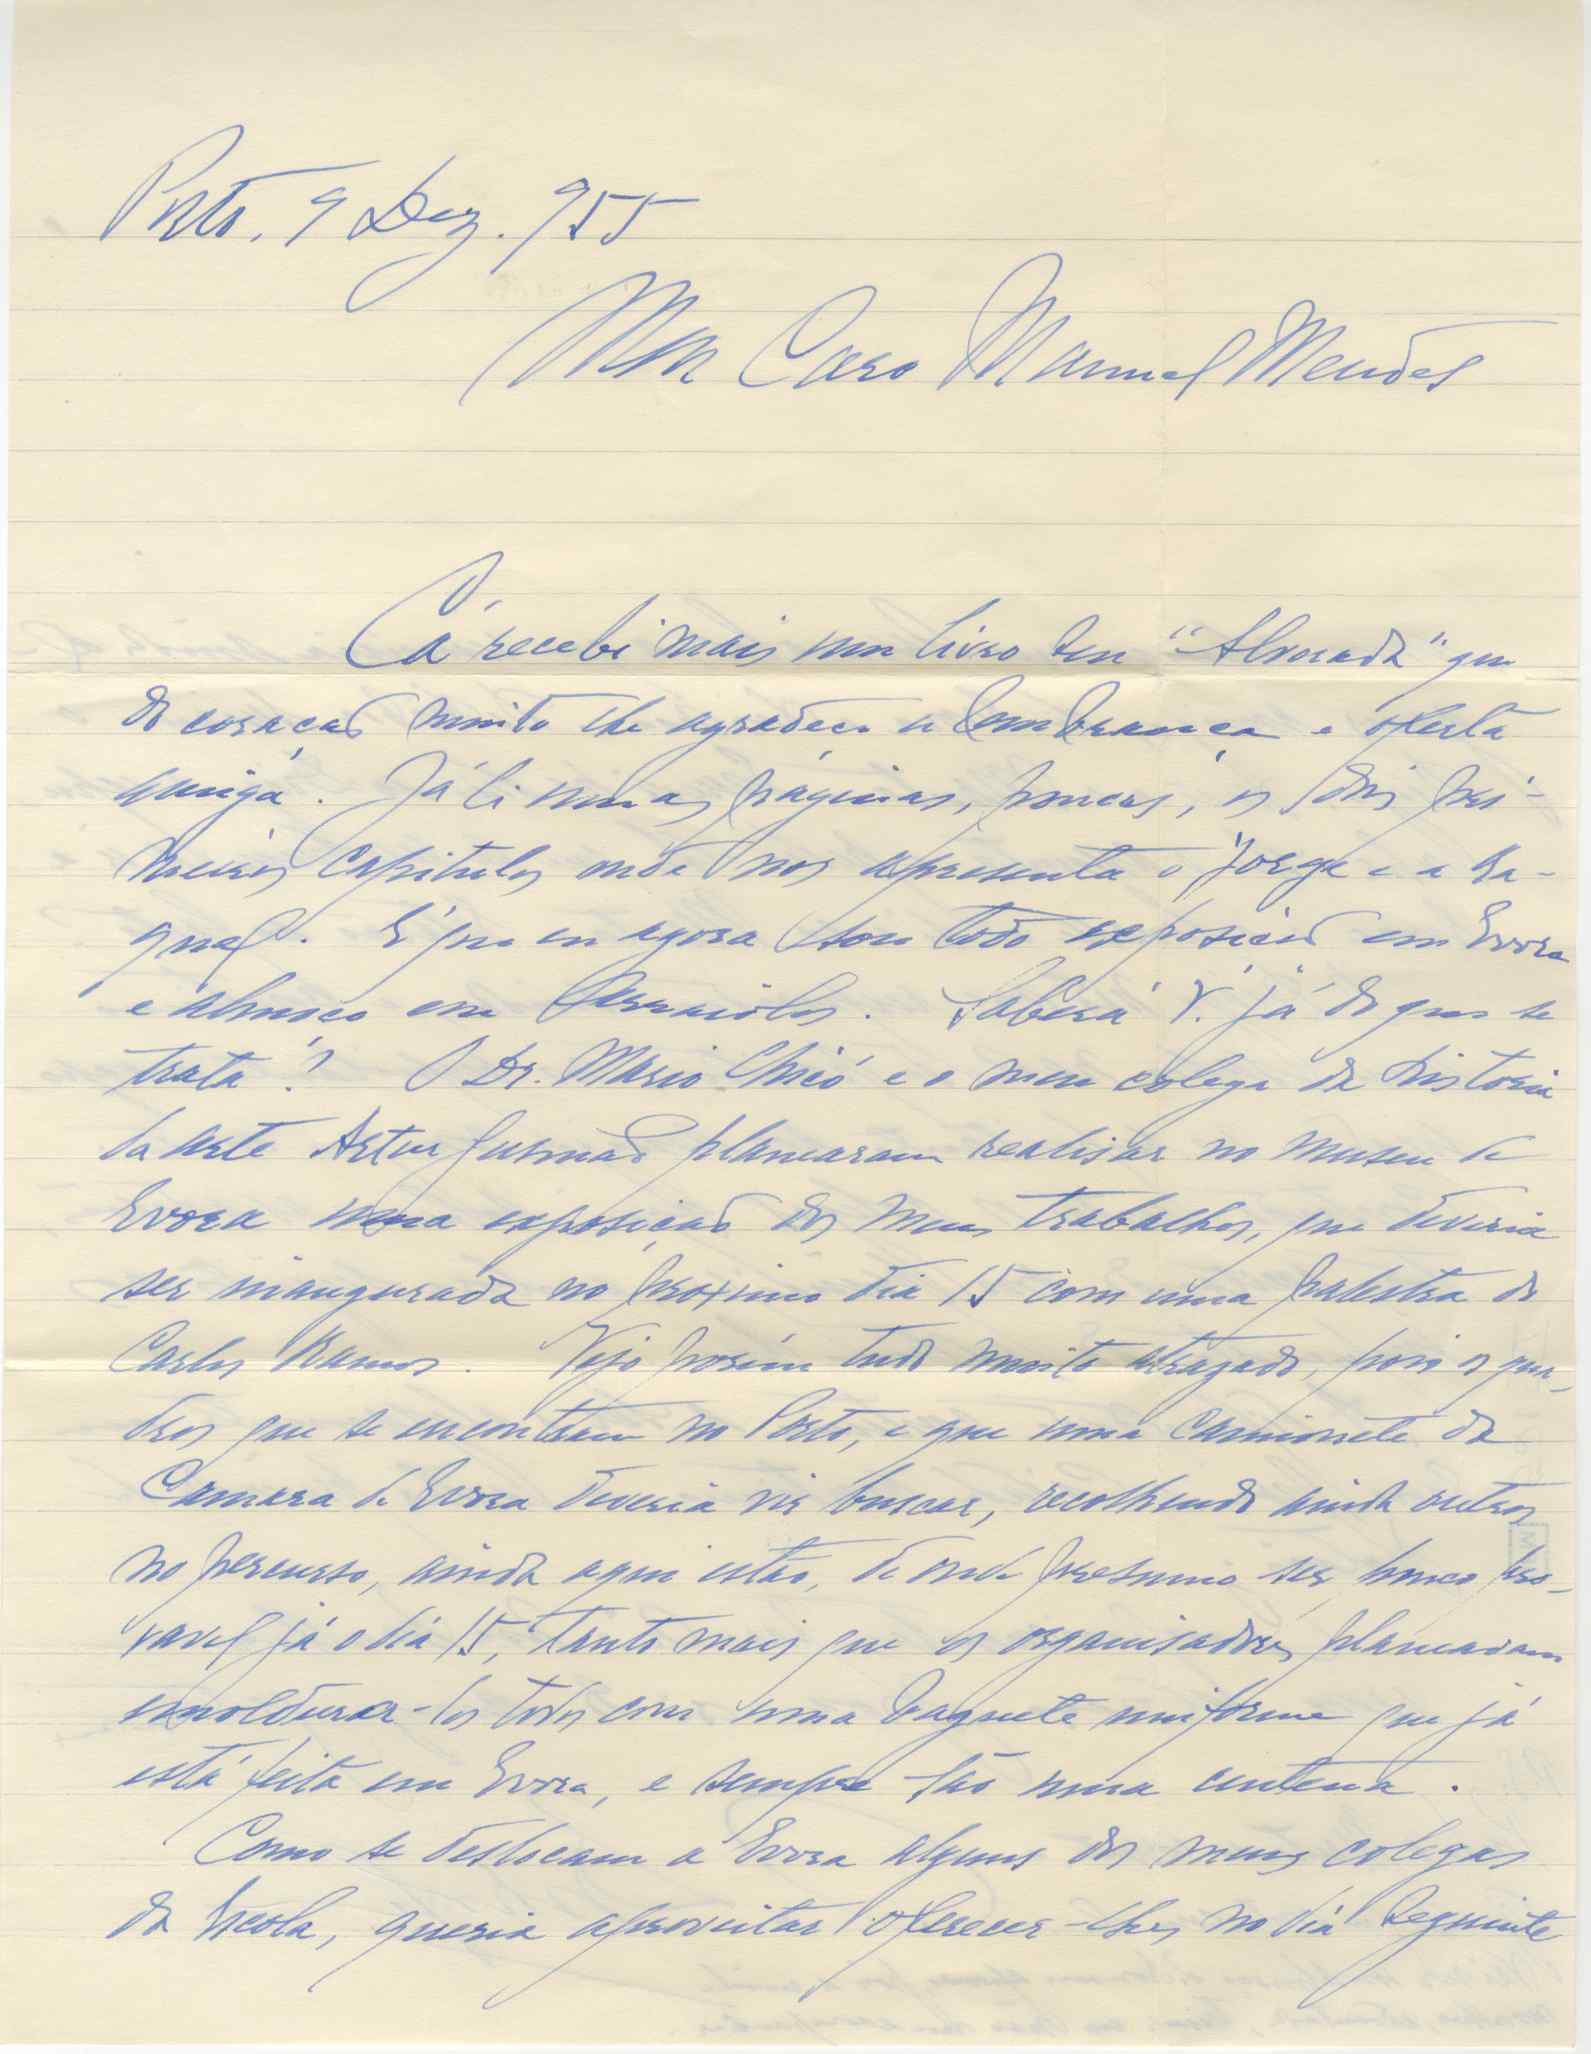 Porto, 9 Dez. 955
Meu Caro Manuel Mendes
Cá recebi mais um livro seu "Alvorada" que
de coração muito lhe agradeço a lembrança e oferta
amiga. Já li umas páginas, poucas, os dois pri-
meiros capitulos onde nos apresenta o Jorge e a Ra-
quel. É que eu agora sou todo exposição em Evora
e almoço em Arraiolos. Saberá V. já de que se
trata? O Dr. Mario Chicó e o meu colega da historia
da arte Artur Gusmão planearam realisar no museu de
Evora uma exposição dos meus trabalhos, que deveria
ser inaugurada no proximo dia 15 com uma palestra do
Carlos Ramos. Vejo porém tudo muito atrazado, pois os qua-
dros que se encontram no Porto, e que uma camionete da
Camara de Evora deveria vir buscar, recolhendo ainda outros
no percurso, ainda aqui estão, de onde presumo ser pouco pro-
vavel já o dia 15, tanto mais que os organisadores planearam
emoldurar-los todos com uma baguete uniforme que já
está feita em Evora, e sempre são uma centena.
Como se deslocam a Evora alguns dos meus colegas
da Escola, queria aproveitar oferecer-lhes no dia seguinte